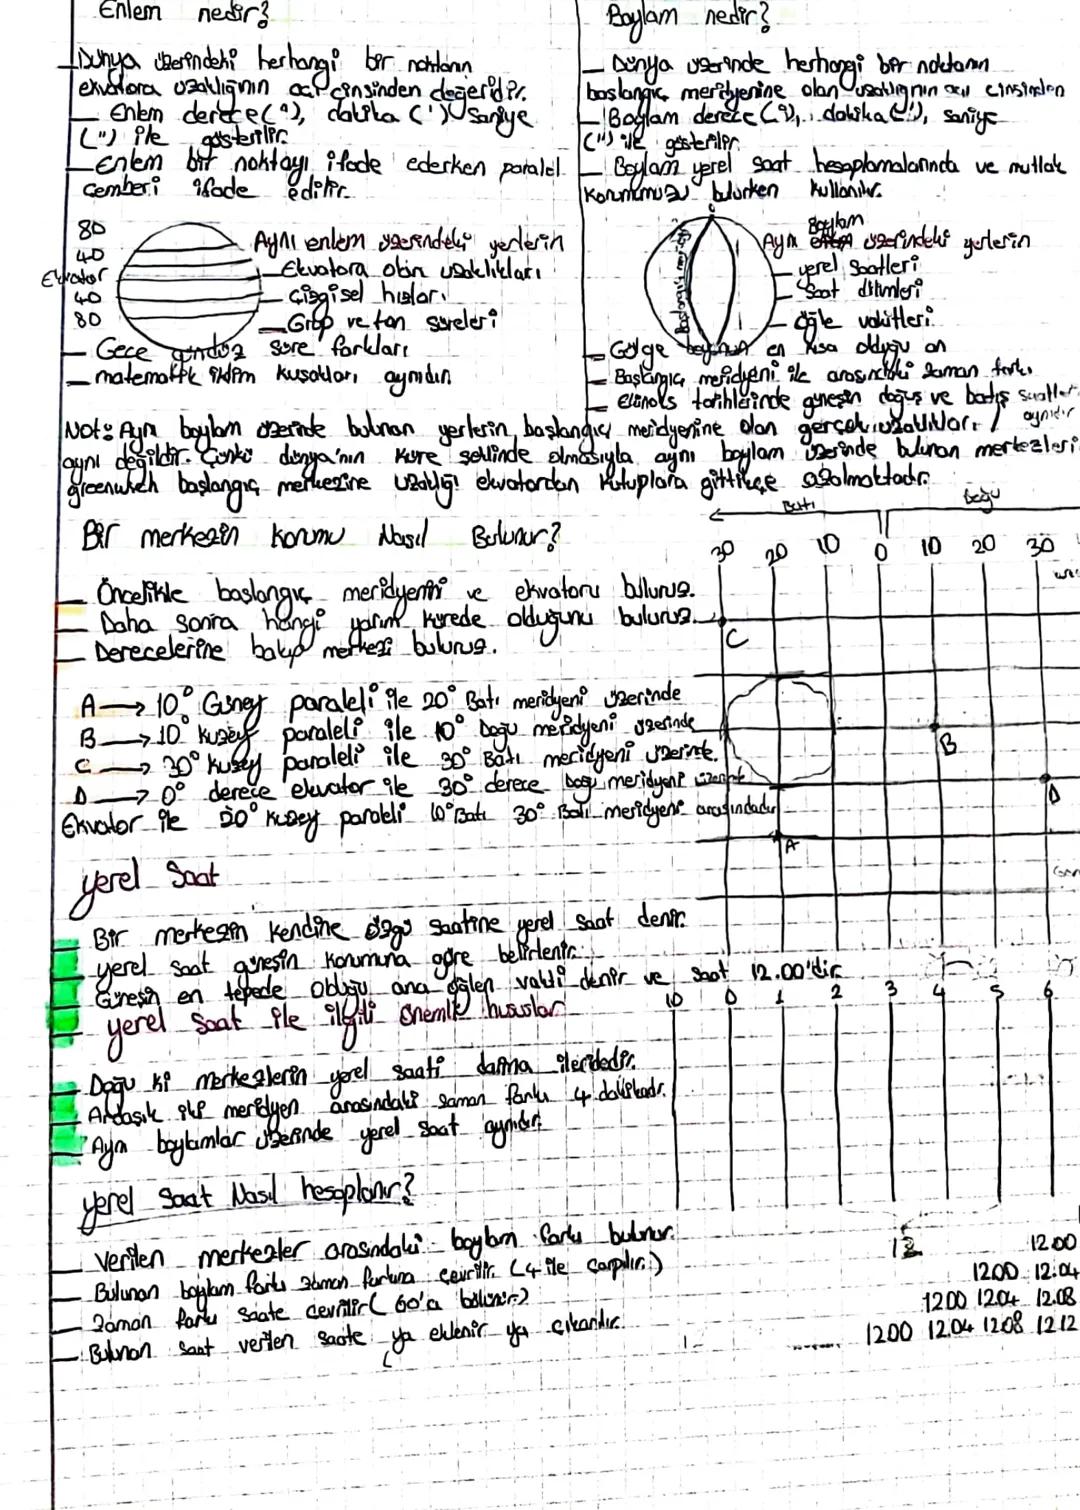 Enlem nedir?
Dünya üzerindeki herhangi bir noktanın
ekvatora uzaklığının açı cinsinden değeridir.
– Enlem derece(°), dakika (') saniye
(") ile gösterilir.
– Enlem bir noktayı ifade ederken paralel
çemberi ifade edilir.
80
40
Ekvator
40
80
Aynı enlem üzerindeki yerlerin
– Ekvatora olan uzaklıkları
– Çizgisel hızları
– Grup ve tan süreleri
– Gece gündüz süre farkları
– matematik iklim kuşakları aynıdır.
Boylam nedir?
– Dünya üzerinde herhangi bir noktanın
başlangıç meridyenine olan uzaklığının açı cinsinden
– Boylam derece(°), dakika('), saniye
(") ile gösterilir.
– Boylam yerel saat hesaplamalarında ve mutlak
konumumuzu bulurken kullanılır.
Başlangıç meridyeni
Boylam
Aynı üzerindeki yerlerin
– yerel Saatleri
– Saat dilimleri
– öğle vakitleri
– Gölge boyunun en kısa olduğu an
– Başlangıç meridyeni ile arasındaki zaman farkı
– ekinoks tarihlerinde güneşin doğuş ve batış saatleri
aynıdır
Not: Aynı boylam üzerinde bulunan yerlerin başlangıç meridyenine olan gerçek uzaklıkları
aynı değildir. Çünkü dünya'nın küre şeklinde olmasıyla aynı boylam üzerinde bulunan merkezleri
greenwich başlangıç merkezine uzaklığı ekvatordan kutuplara gittikçe azalmaktadır.
Bir merkezin Konumu Nasıl Bulunur?
– Öncelikle başlangıç meridyenini ve ekvatoru buluruz.
– Daha sonra hangi yarım kürede olduğunu buluruz.
– Derecelerine bakıp merkezi buluruz.
A → 10° Güney paraleli ile 20° Batı meridyeni üzerinde
B → 10° Kuzey paraleli ile 10° Doğu meridyeni üzerinde
C → 30° Kuzey paraleli ile 30° Batı meridyeni üzerinde.
D → 0° derece ekvator ile 30° derece Doğu meridyeni üzerinde
Ekvator ile 20° Kuzey paraleli 10° Batı 30° Batı meridyeni arasındadır
Batı Doğu
30 20 10 0 10 20 30
C
B
D
A
yerel Saat
Bir merkezin kendine özgü saatine yerel saat denir.
yerel saat güneşin konumuna göre belirlenir.
Güneşin en tepede olduğu ana öğlen vakti denir ve saat 12.00'dir
yerel Saat ile ilgili önemli hususlar
– Doğu ki merkezlerin yerel saati daima ileridedir.
– Ardaşık iki meridyen arasındaki zaman farkı 4 dakikadır.
– Aynı boylamlar üzerinde yerel saat aynıdır.
10 0 1 2 3 4 5 6
yerel Saat Nasıl hesaplanır?
– Verilen merkezler arasındaki boylam farkı bulunur.
– Bulunan boylam farkı zaman farkına çevrilir. (4 ile çarpılır.)
– Zaman farkı saate çevrilir( 60'a bölünür.)
– Bulunan saat verilen saate ya eklenir ya çıkarılır.
12 12.00
12.00 12.04
12.00 12.04 12.08
12.00 12.04 12.08 12.12